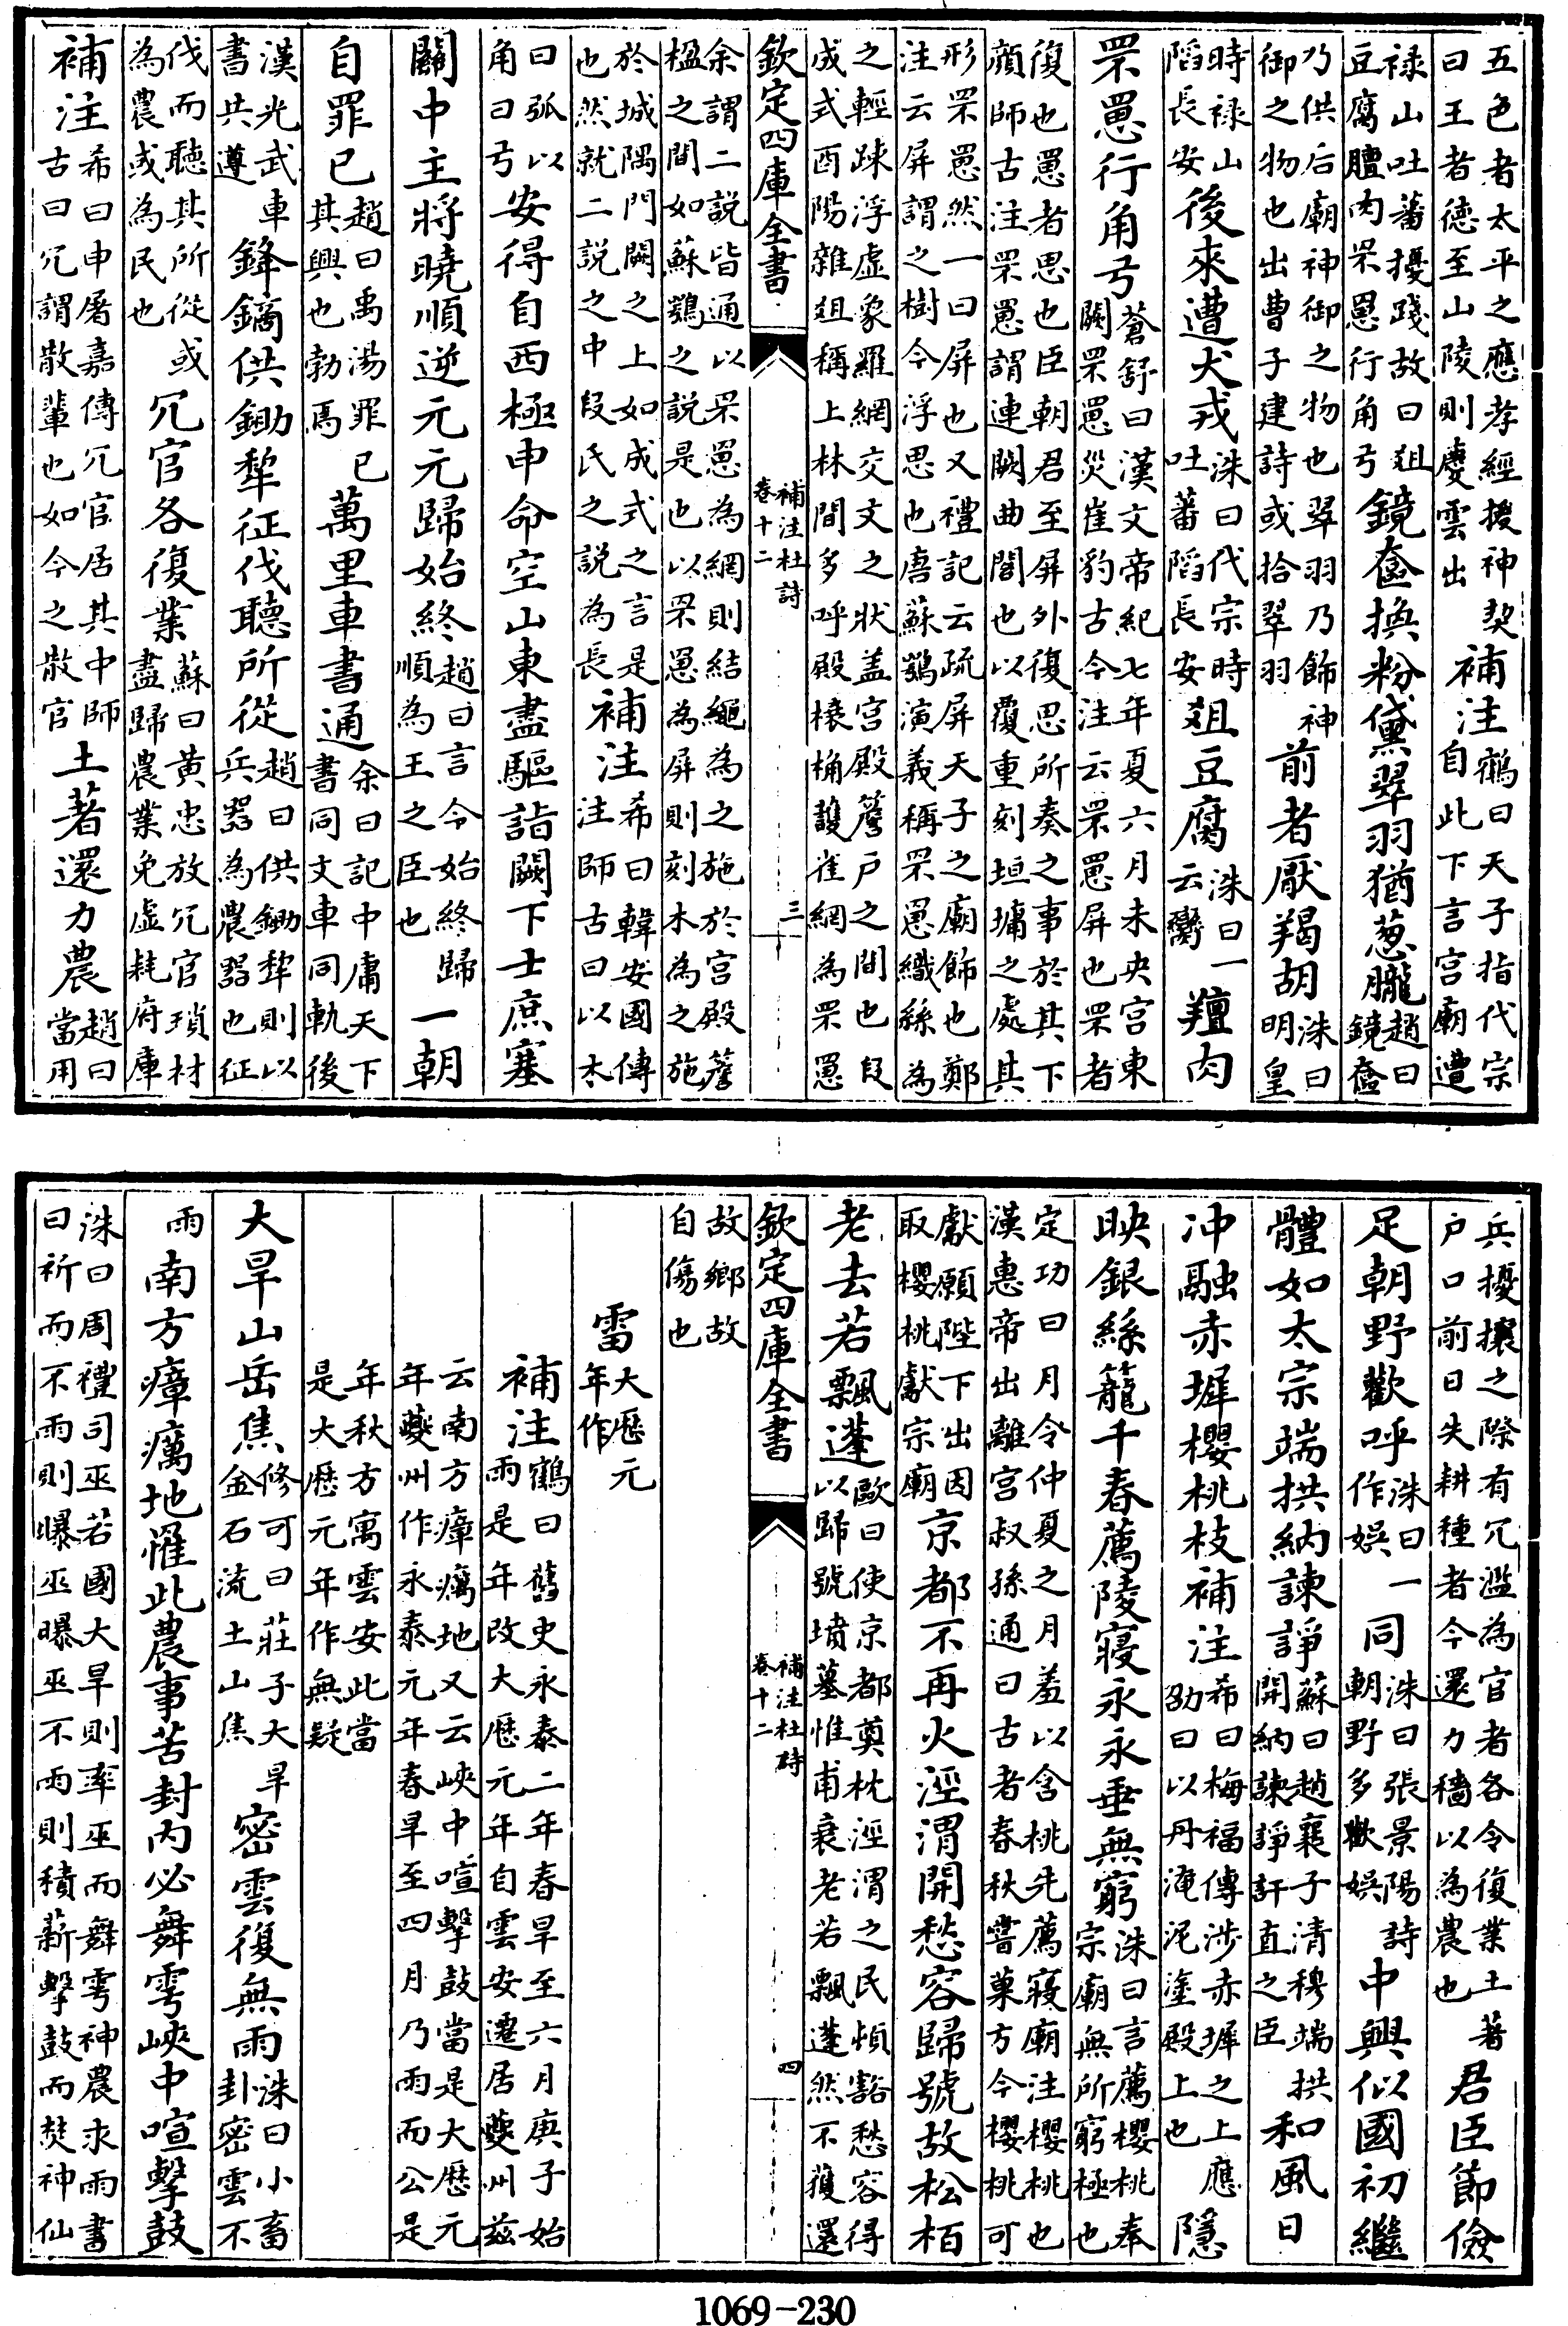 五色者太平之應孝經援神契
曰王者徳至山陵則慶雲出
補注
鶴曰天子指代宗
自此下言宫廟遭
禄山吐蕃擾踐故曰俎
豆腐膻肉罘罳行角弓
鏡奩換粉黛翠羽猶葱朧
趙曰
鏡奩
乃供后廟神御之物也翠羽乃飾神
御之物也出曹子建詩或拾翠羽
前者厭羯胡
洙曰
明皇
時禄山
䧟長安
後來遭犬戎
洙曰代宗時
吐蕃䧟長安
俎豆腐
洙曰一
云臠
羶肉
罘罳行角弓
蒼舒曰漢文帝紀七年夏六月未央宫東
闕罘罳災崔豹古今注云罘罳屏也罘者
復也罳者思也臣朝君至屏外復思所奏之事於其下
顔師古注罘罳謂連闕曲閣也以覆重刻垣墉之處其
形罘罳然一曰屏也又禮記云疏屏天子之廟飾也鄭
注云屏謂之樹今浮思也唐蘇鶚演義稱罘罳織絲為
之輕踈浮虚象羅網交文之狀盖宫殿簷户之間也段
成式酉陽雜俎稱上林間多呼殿榱桷護雀網為罘罳
欽定四庫全書
補注杜詩
卷十二
三
余謂二説皆通以罘罳為網則結繩為之施於宫殿簷
楹之間如蘇鶚之説是也以罘罳為屏則刻木為之施
於城隅門闕之上如成式之言是
也然就二説之中段氏之説為長
補注
希曰韓安國傳
注師古曰以木
曰弧以
角曰弓
安得自西極申命空山東盡驅詣闕下士庶塞
關中主將曉順逆元元歸始終
趙曰言今始終歸
順為王之臣也
一朝
自罪已
趙曰禹湯罪已
其興也勃焉
萬里車書通
余曰記中庸天下
書同文車同軌後
漢光武車
書共遵
鋒鏑供鋤犂征伐聽所從
趙曰供鋤犂則以
兵器為農器也征
伐而聽其所從或
為農或為民也
冗官各復業
蘇曰黄忠放冗官瑣材
盡歸農業免虚耗府庫
補注
希曰申屠嘉傳冗官居其中師
古曰冗謂散輩也如今之散官
土著還力農
趙曰
當用
兵擾攘之際有冗濫為官者各令復業土著
户口前日失耕種者今還力穡以為農也
君臣節儉
足朝野歡呼
洙曰一
作娱
同
洙曰張景陽詩
朝野多歡娯
中興似國初繼
體如太宗端拱納諫諍
蘇曰趙襄子清穆端拱
開納諫諍訐直之臣
和風日
冲融赤墀櫻桃枝
補注
希曰梅福傳涉赤墀之上應
劭曰以丹淹泥塗殿上也
隱
映銀絲籠千春薦陵寝永永垂無窮
洙曰言薦櫻桃奉
宗廟無所窮極也
定功曰月令仲夏之月羞以含桃先薦寢廟注櫻桃也
漢惠帝出離宫叔孫通曰古者春秋嘗菓方今櫻桃可
獻願陛下出因
取櫻桃獻宗廟
京都不再火涇渭開愁容歸號故松柏
老去若飄蓬
歐曰使京都奠枕涇渭之民頻豁愁容得
以歸號墳墓惟甫衰老若飄蓬然不獲還
欽定四庫全書
補注杜詩
卷十二
四
故鄉故
自傷也
雷
大厯元
年作
補注
鶴曰舊史永泰二年春旱至六月庚子始
雨是年改大厯元年自雲安遷居夔州兹
云南方瘴癘地又云峽中喧擊鼓當是大厯元
年夔州作永泰元年春旱至四月乃雨而公是
年秋方寓雲安此當
是大厯元年作無疑
大旱山岳焦
修可曰莊子大旱
金石流土山焦
密雲復無雨
洙曰小畜
卦密雲不
雨
南方瘴癘地罹此農事苦封内必舞雩峽中喧擊鼓
洙曰周禮司巫若國大旱則率巫而舞雩神農求雨書
曰祈而不雨則曝巫曝巫不雨則積薪擊鼓而焚神仙
1069-230